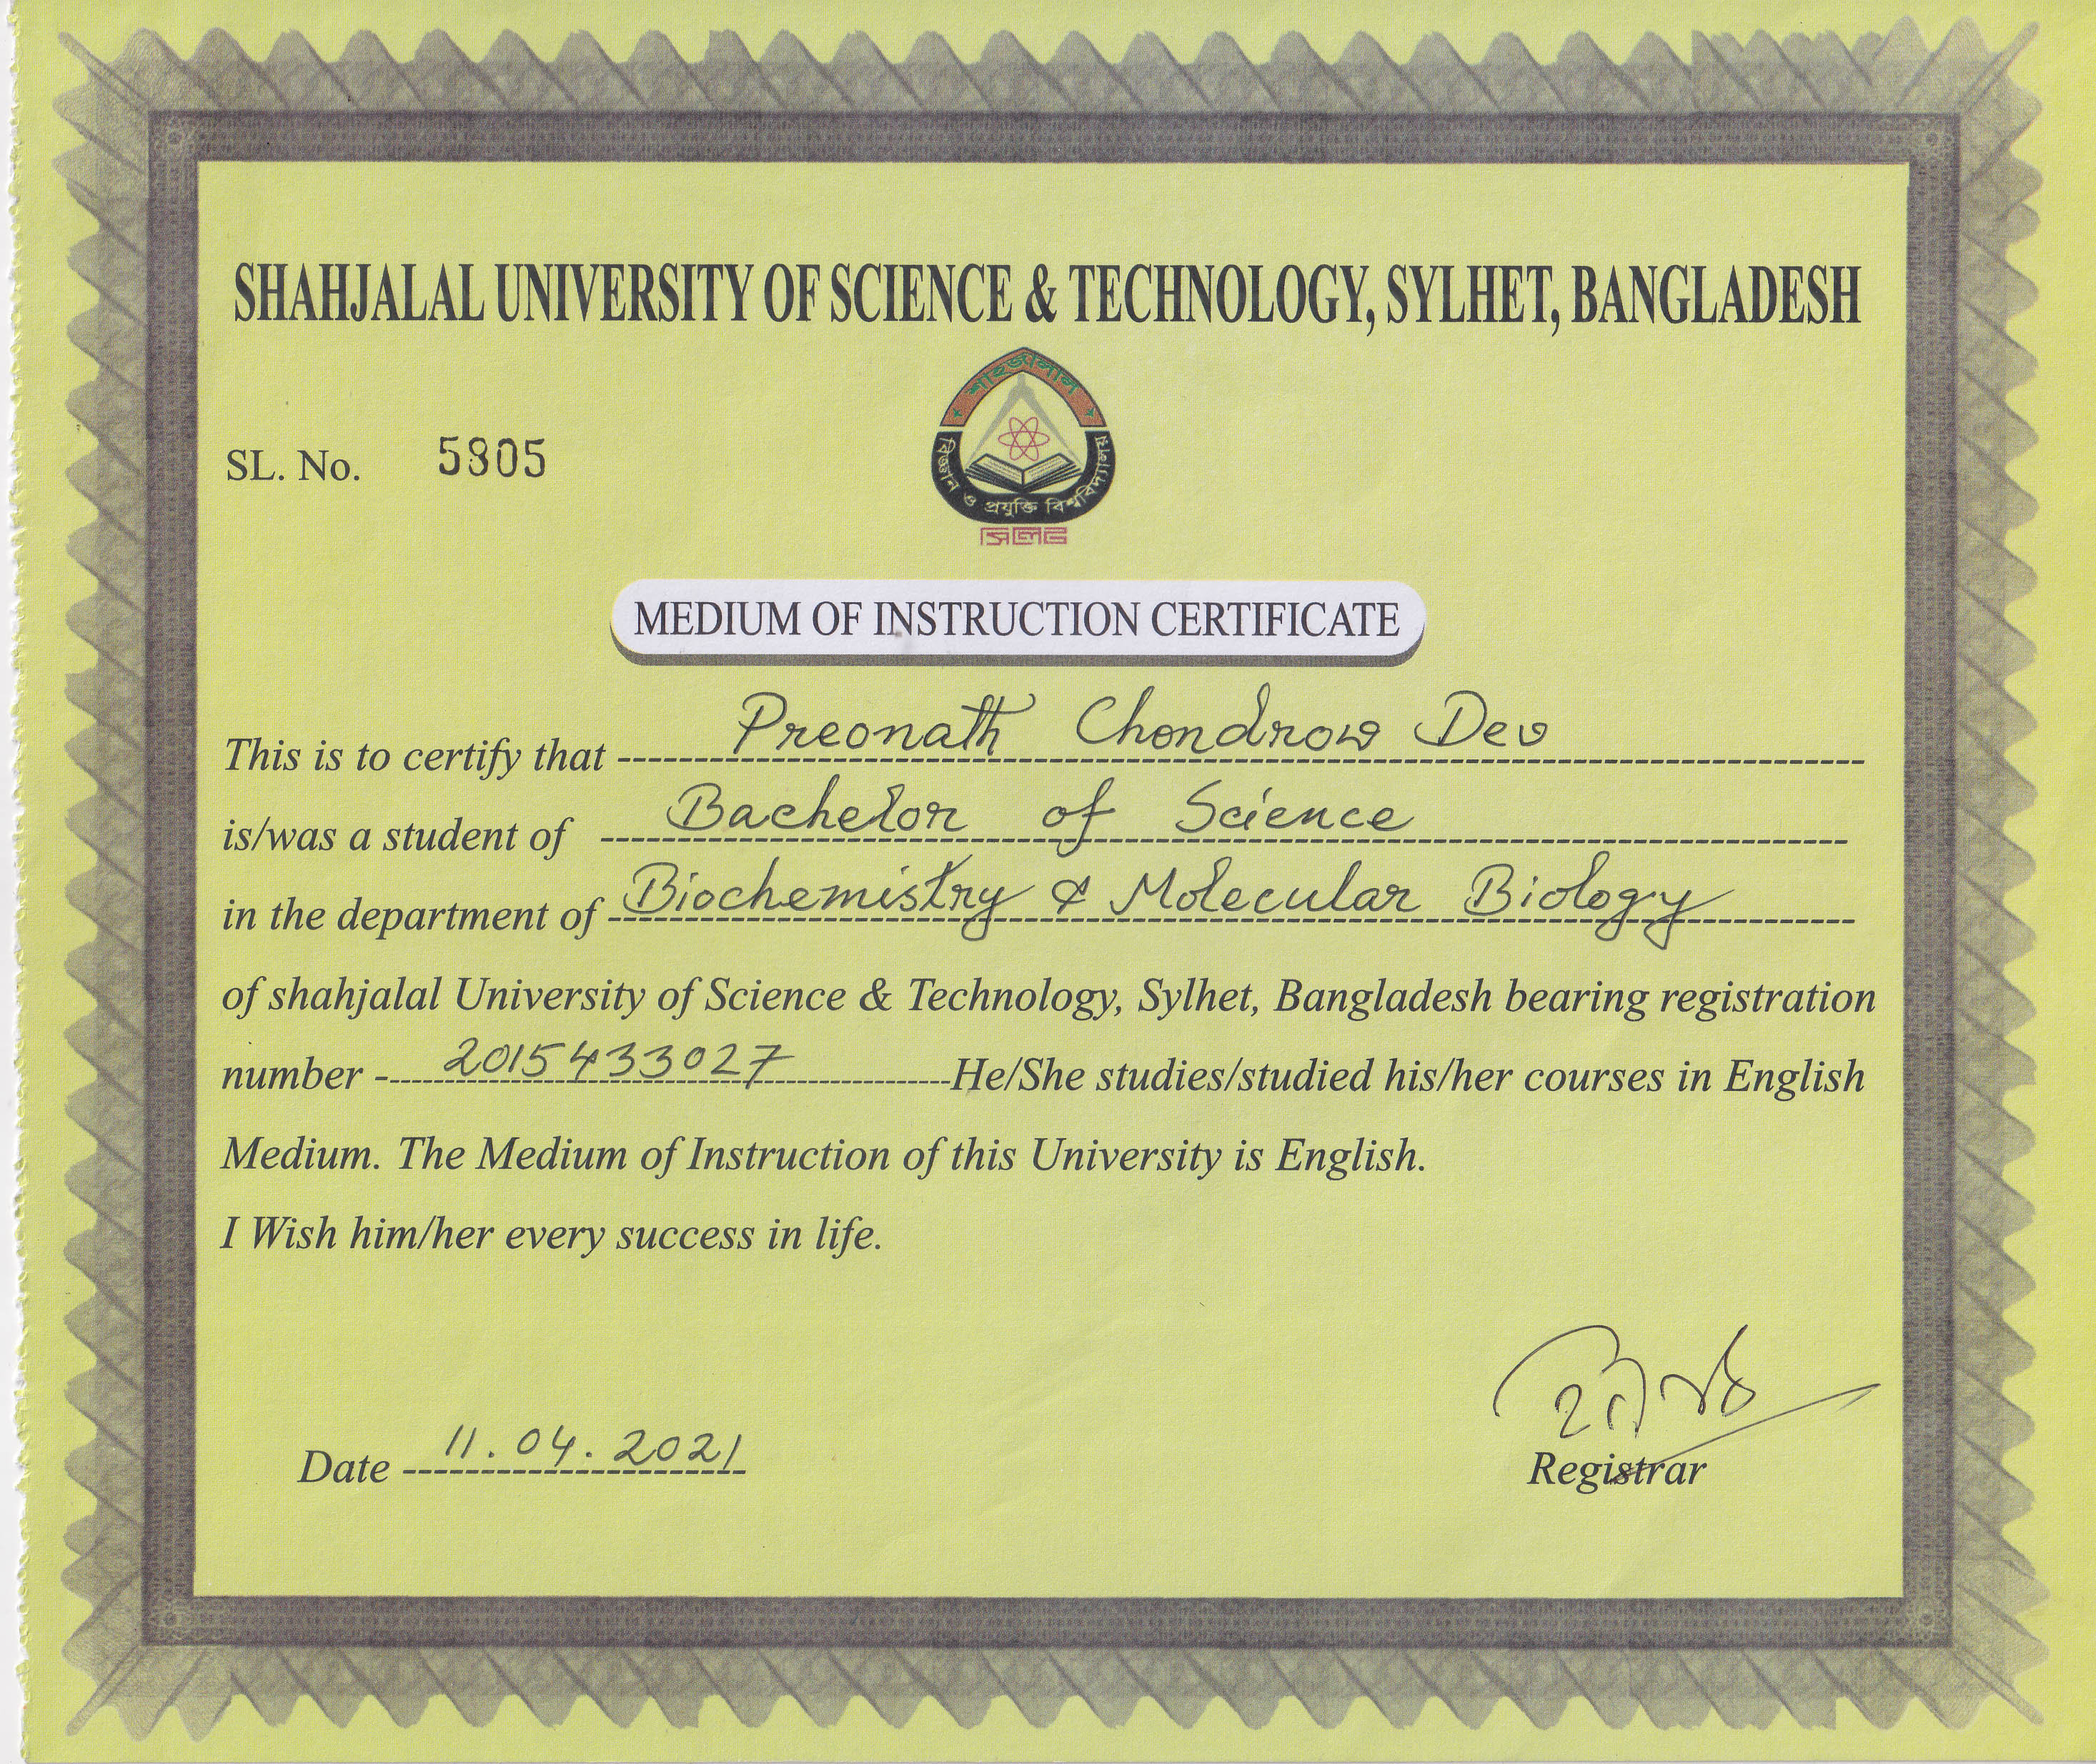 SHAHJALAL UNIVERSITY OF SCIENCE & TECHNOLOGY, SYLHET, BANGLADESH
শাহজালাল
বিজ্ঞান ও প্রযুক্তি বিশ্ববিদ্যালয়
সিলেট
SL. No. 5905
MEDIUM OF INSTRUCTION CERTIFICATE
This is to certify that Preonath Chondrow Dev
is/was a student of Bachelor of Science
in the department of Biochemistry & Molecular Biology
of shahjalal University of Science & Technology, Sylhet, Bangladesh bearing registration
number - 2015433027 He/She studies/studied his/her courses in English
Medium. The Medium of Instruction of this University is English.
I Wish him/her every success in life.
Date 11.04.2021
Registrar